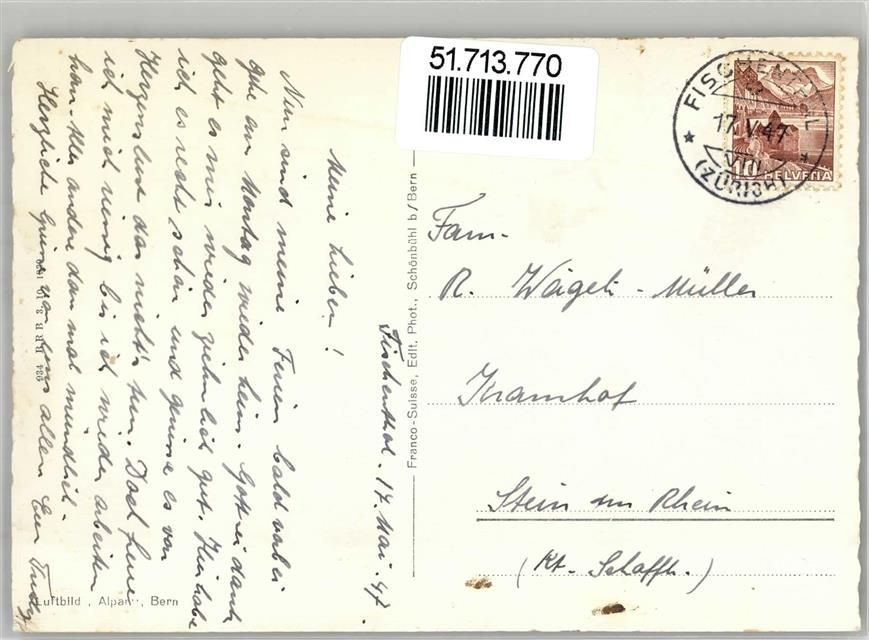 51.713.770
FISCHENTHAL
17.V.47
VIII
(ZÜRICH)
10 HELVETIA
Fam.
R. Wägeli - Müller
Kramhof
Stein am Rhein
(Kt. Schaffh.)
Franco-Suisse, Edit. Phot., Schönbühl b/Bern
Fischenthal. 17. Mai. 47.
Meine Lieben!
Nun sind meine Ferien bald vorbei
gehe am Montag wieder heim. Gottseidank
geht es mir wieder ziemlich gut. Hier habe
ich es recht schön und genies es von
Herzenslust das nichts tun. Doch freue
ich mich riesig bis ich wieder arbeiten
kann. Alles andere dan mal mündlich.
Herzliche Grüsse von uns allen Eure Trudy
934 BRB 3. 10. 1939
Luftbild, Alpar, Bern